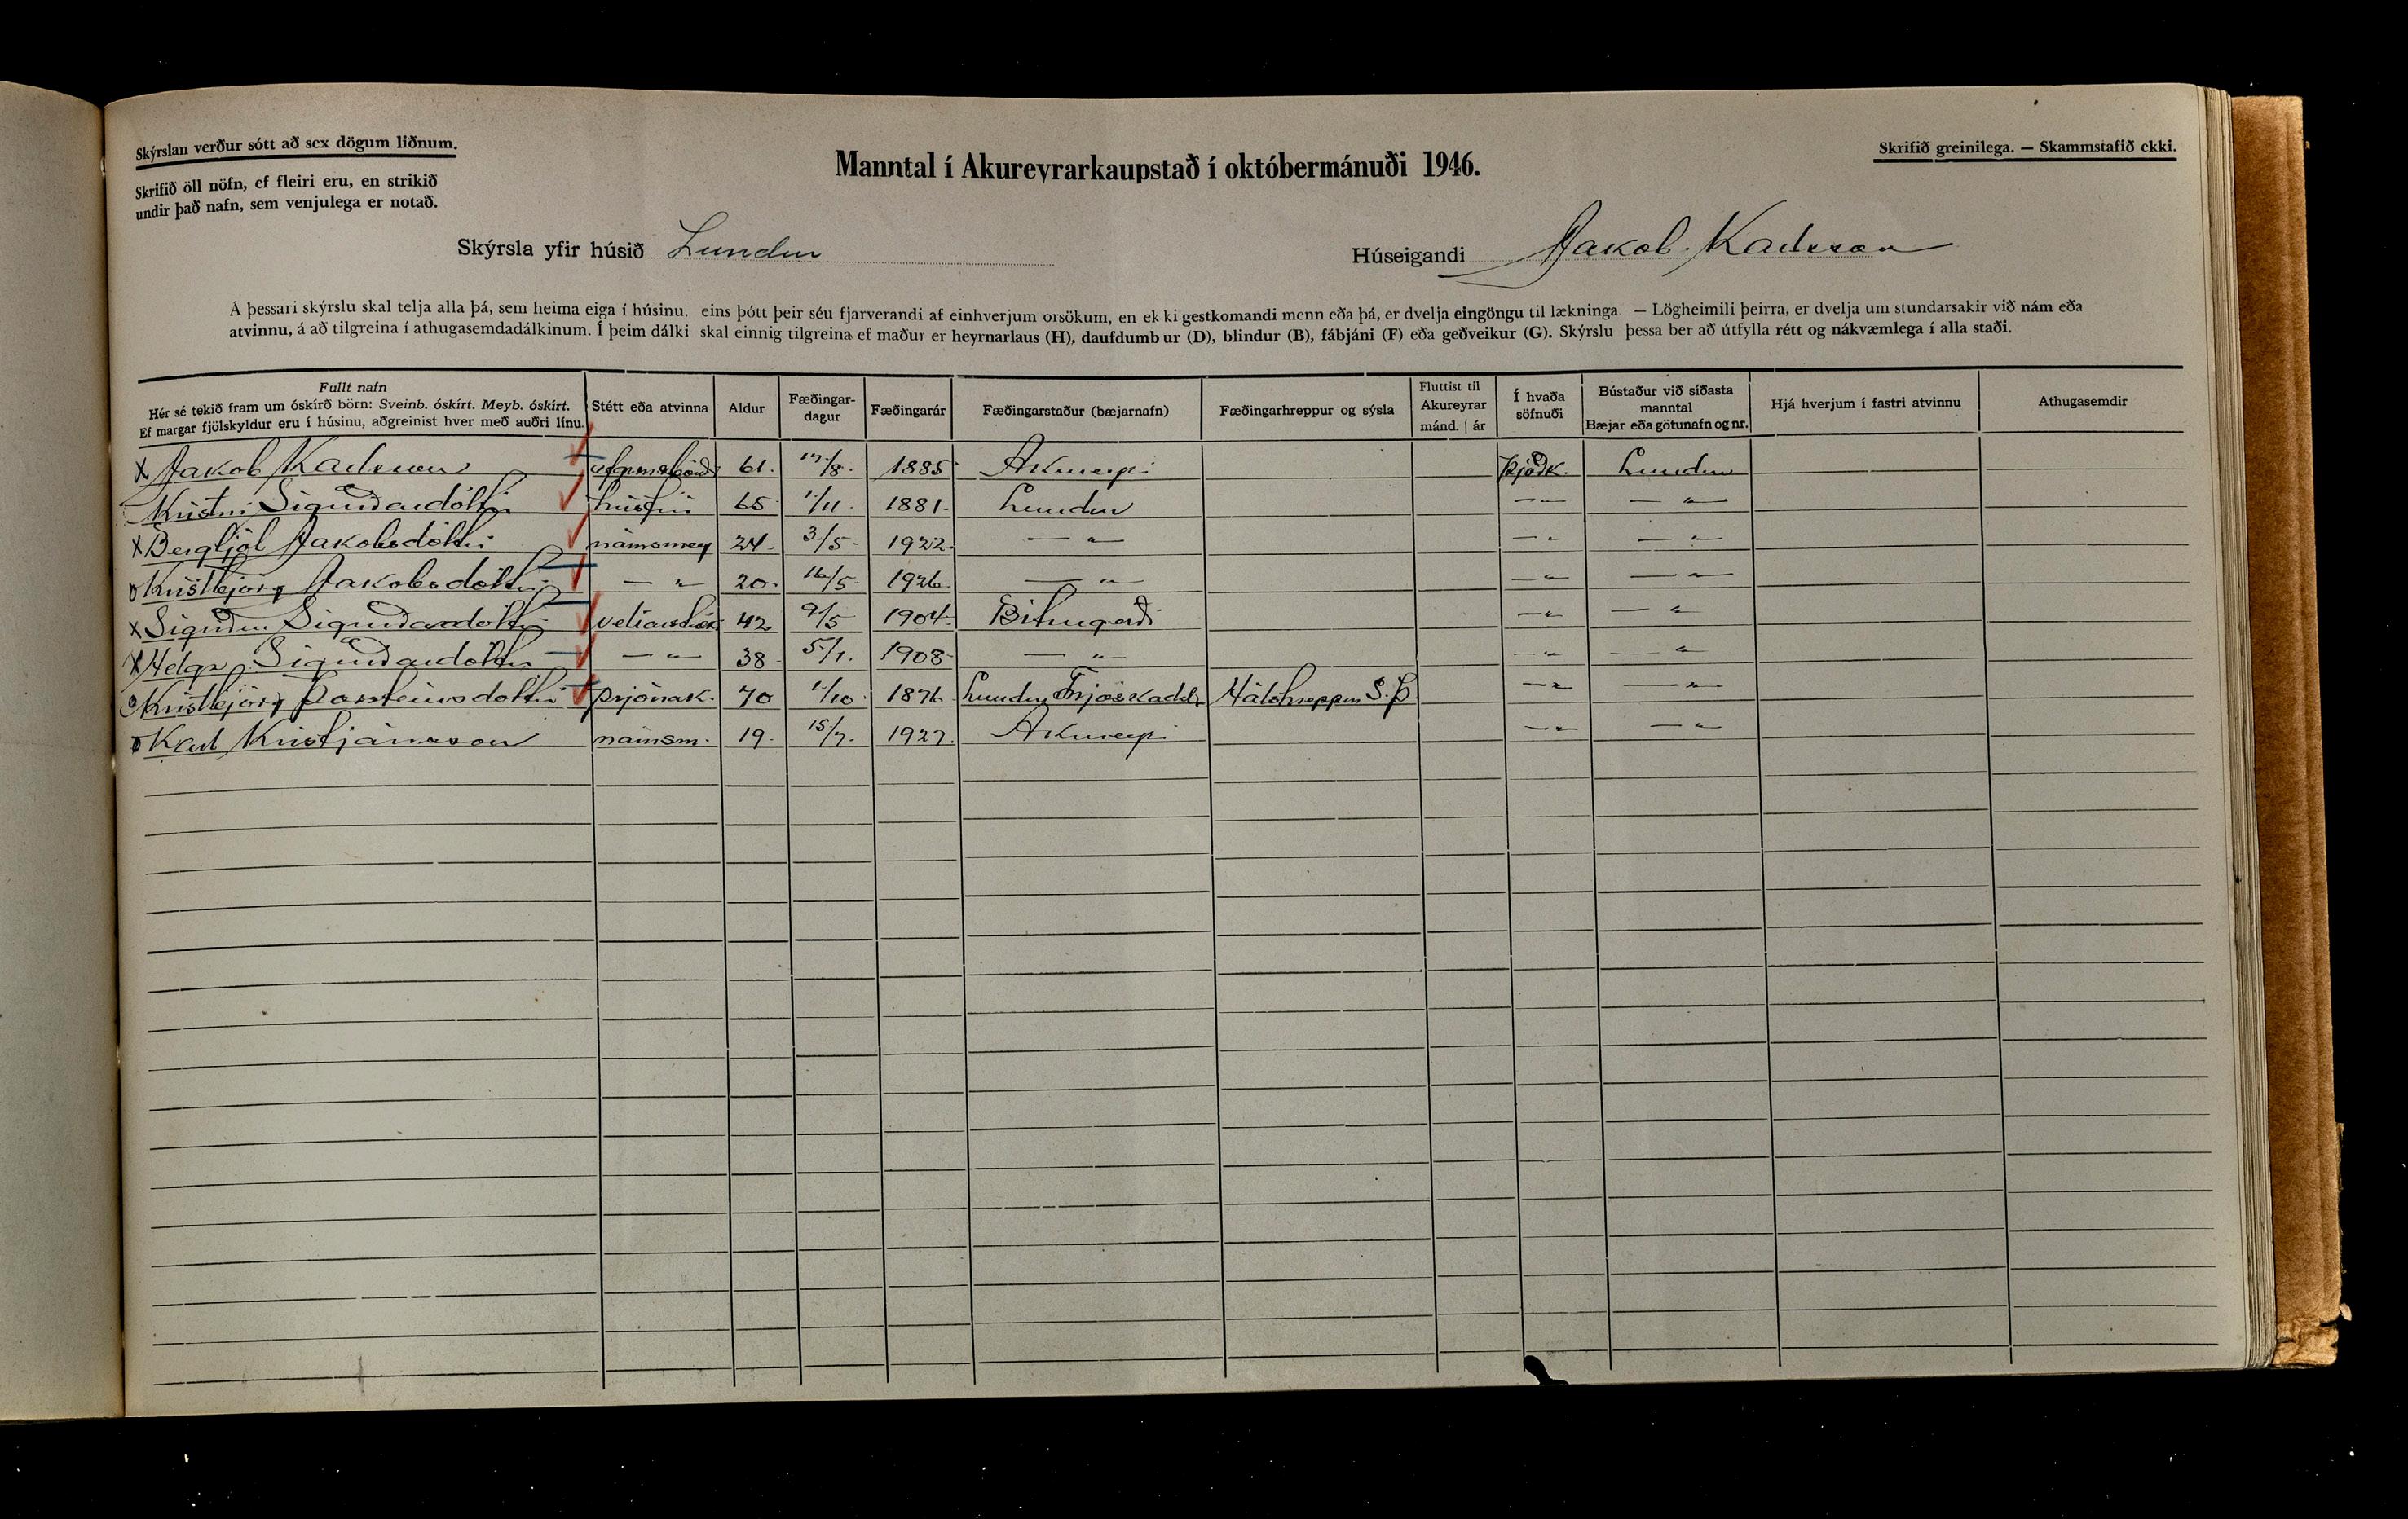 Skýrslan verður sótt að sex dögum liðnum.
Skrifið öll nöfn, ef fleiri eru, en strikið
undir það nafn, sem venjulega er notað.
Manntal í Akureyrarkaupstað í októbermánuði 1946.
Skrifið greinilega. — Skammstafið ekki.
Skýrsla yfir húsið Lundur
Húseigandi Jakob Karlsson
Á þessari skýrslu skal telja alla þá, sem heima eiga í húsinu, eins þótt þeir séu fjarverandi af einhverjum orsökum, en ekki gestkomandi menn eða þá, er dvelja eingöngu til lækninga. — Lögheimili þeirra, er dvelja um stundarsakir við nám eða
atvinnu, á að tilgreina í athugasemdadálkinum. Í þeim dálki skal einnig tilgreina ef maður er heyrnarlaus (H), daufdumbur (D), blindur (B), fábjáni (F) eða geðveikur (G). Skýrslu þessa ber að útfylla rétt og nákvæmlega í alla staði.
Fullt nafn
Hér sé tekið fram um óskírð börn: Sveinb. óskírt. Meyb. óskírt.
Ef margar fjölskyldur eru í húsinu, aðgreinist hver með auðri línu.
Stétt eða atvinna
Aldur
Fæðingar-
dagur
Fæðingarár
Fæðingarstaður (bæjarnafn)
Fæðingarhreppur og sýsla
Fluttist til
Akureyrar
mánd. | ár
Í hvaða
söfnuði
Bústaður við síðasta
manntal
Bæjar eða götunafn og nr.
Hjá hverjum í fastri atvinnu
Athugasemdir
x Jakob Karlsson 61. /8. 1885 Akureyri Þjóðk. Lundur
Kristín Sigurðardóttir húsfrú 65 1/11. 1881. Lundur —„— — „
x Bergljót Jakobsdóttir námsmey 24. 3/5- 1922. — „ — „ — „
o Kristbjörg Jakobsdóttir — „ 20. 16/5- 1926. — „ — „ — „
x Sigurðardóttir 42 9/5 1904. — „ — „
x Helga Sigurðardóttir — „ 38 5/1. 1908- — „ — „ — „
o Kristbjörg Þorsteinsdóttir prjónak. 70 1/10. 1876. Lundur Fnjóskadal Hálshreppur S.Þ. — „ — „
o Karl Kristjánsson námsm. 19. 15/7. 1927. Akureyri — „ — „